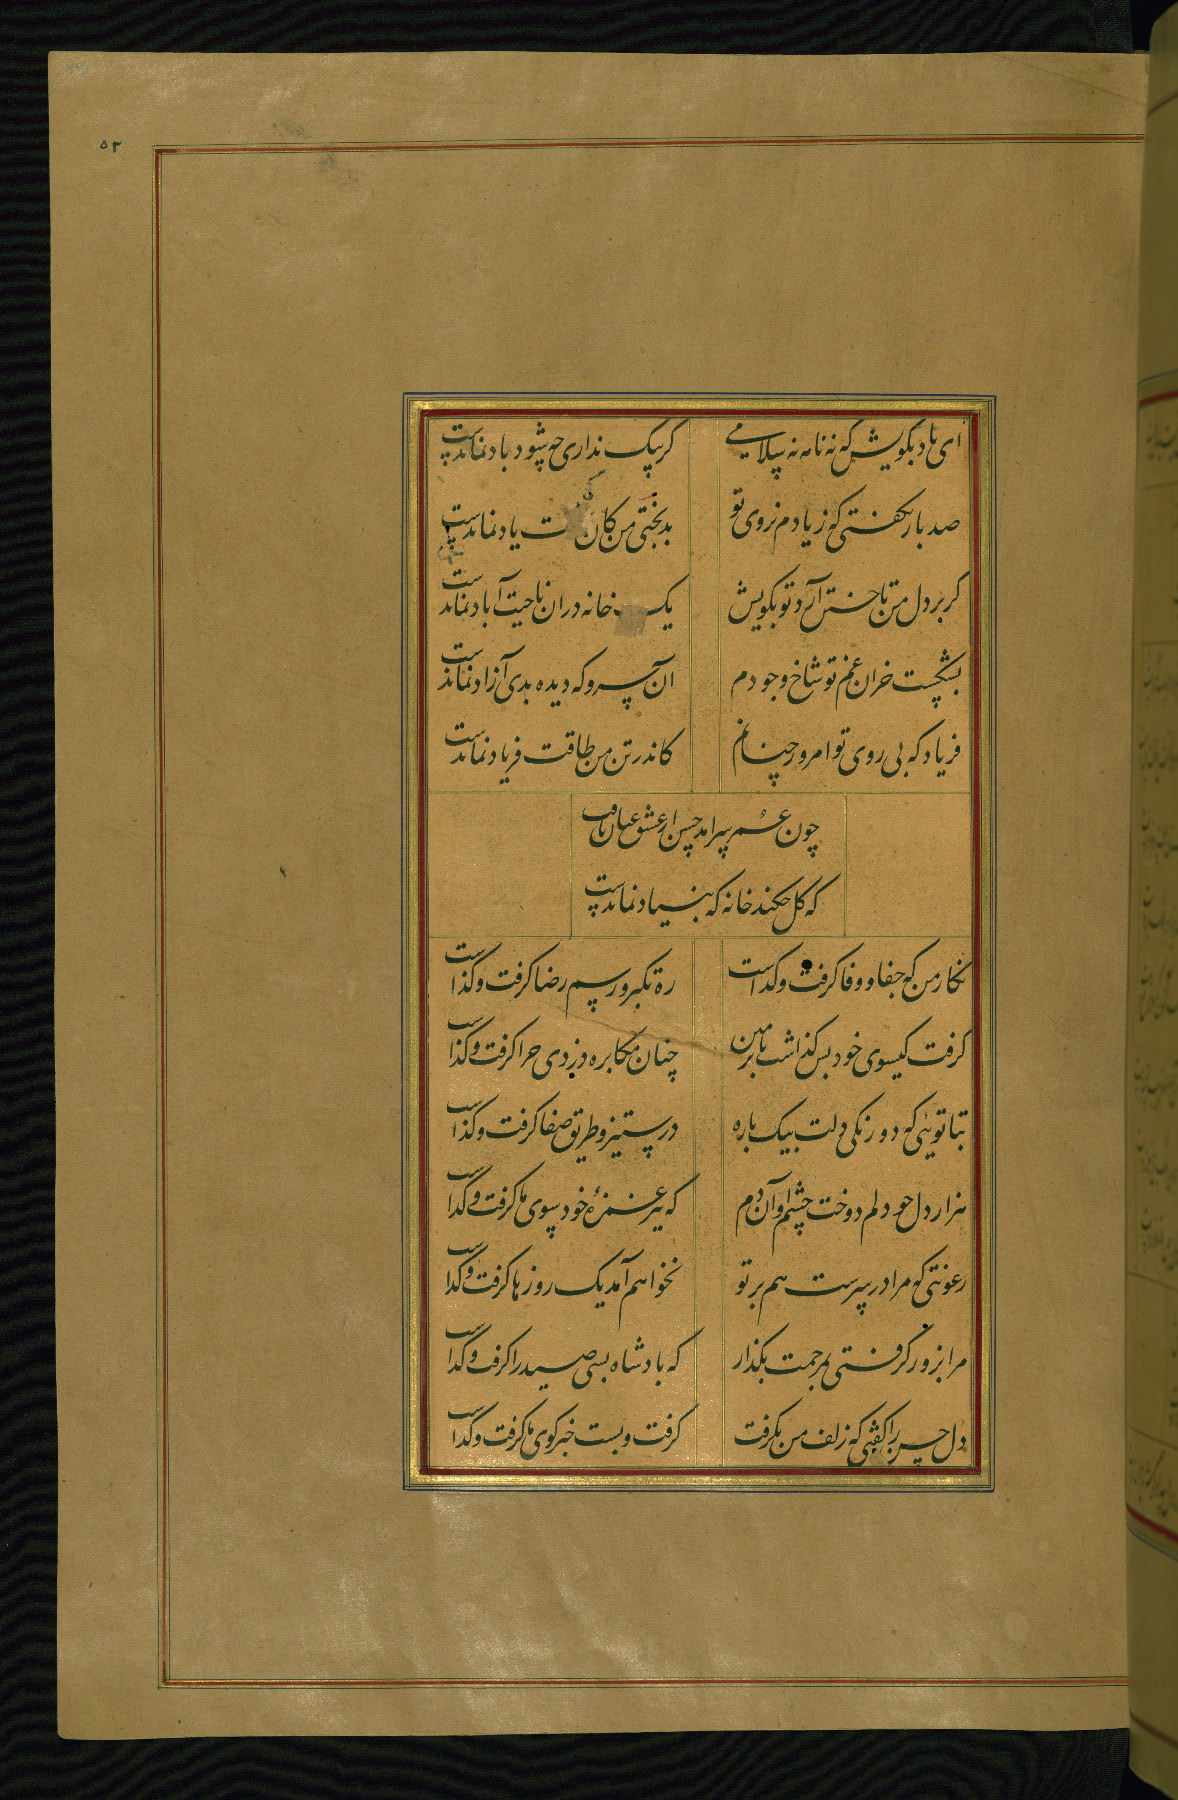 ۵۳
ای باد بکویش که نه نامه نه سلامی کر پیک نداری چه شود باد نماندست
صد بار بکفتی که ز یادم نروی تو بدبختی من کان ت یاد نماندست
کر بر دل من تاختن آرد تو بکویش یک خانه در ان ناحیت آباد نماندست
بشکست خزان غم تو شاخ وجودم آن سرو که دیده بدی آزاد نماندست
فریاد که بی روی تو امروز چنانم کاندر تن من طاقت فریاد نماندست
چون عمر حسن از عشق
که کل چکند خانه که بنیاد نماندست
نکار من که جفا و وفا کرفت و کذاست ره تکبر و رسم رضا کرفت و کذاست
کرفت کیسوی خود بس کذاشت بر من چنان مکابره دزدی مرا کرفت و کذاست
بتا توئی که دو رنکی دلت بیک باره در ستیز و طریق صفا کرفت و کذاست
هزار دل جو دلم دوخت چشم او آن دم که تیر غمزهٔ خود سوی ما کرفت و کذاست
رعونتی که مرا در سرست هم بر تو نخواهم آمد یک روز ها کرفت و کذاست
مرا بزور کرفتی بمرحمت بکذار که بادشاه بسی صید را کرفت و کذاست
دل حسن را کفتی که زلف من بکرفت کرفت و بست خبر کوی ها کرفت و کذاست